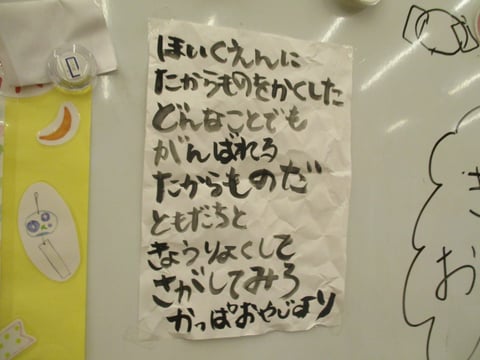 ほいくえんに
たからものをかくした
どんなことでも
がんばれる
たからものだ
ともだちと
きょうりょくして
さがしてみろ
かっぱおやじより
き
お